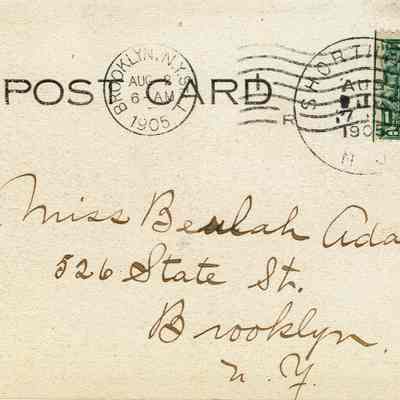 POST CARD
BROOKLYN, N.Y. STA.
AUG 8
6-AM
1905
R
AUG
7
190
N J
Miss Beulah Ada
526 State St.
Brooklyn,
N. Y.